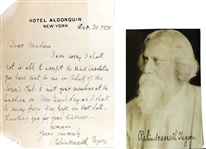 HOTEL ALGONQUIN
NEW YORK
Dec. 20. 1920
Dear Madam
I am sorry I shall
not be able to accept the kind invitation
you have sent to me on behalf of the
to meet your members at the
as I shall
be away from New York on that date.
Thanking you for your kindness
I remain
Yours sincerely
Rabindranath Tagore
Rabindranath Tagore